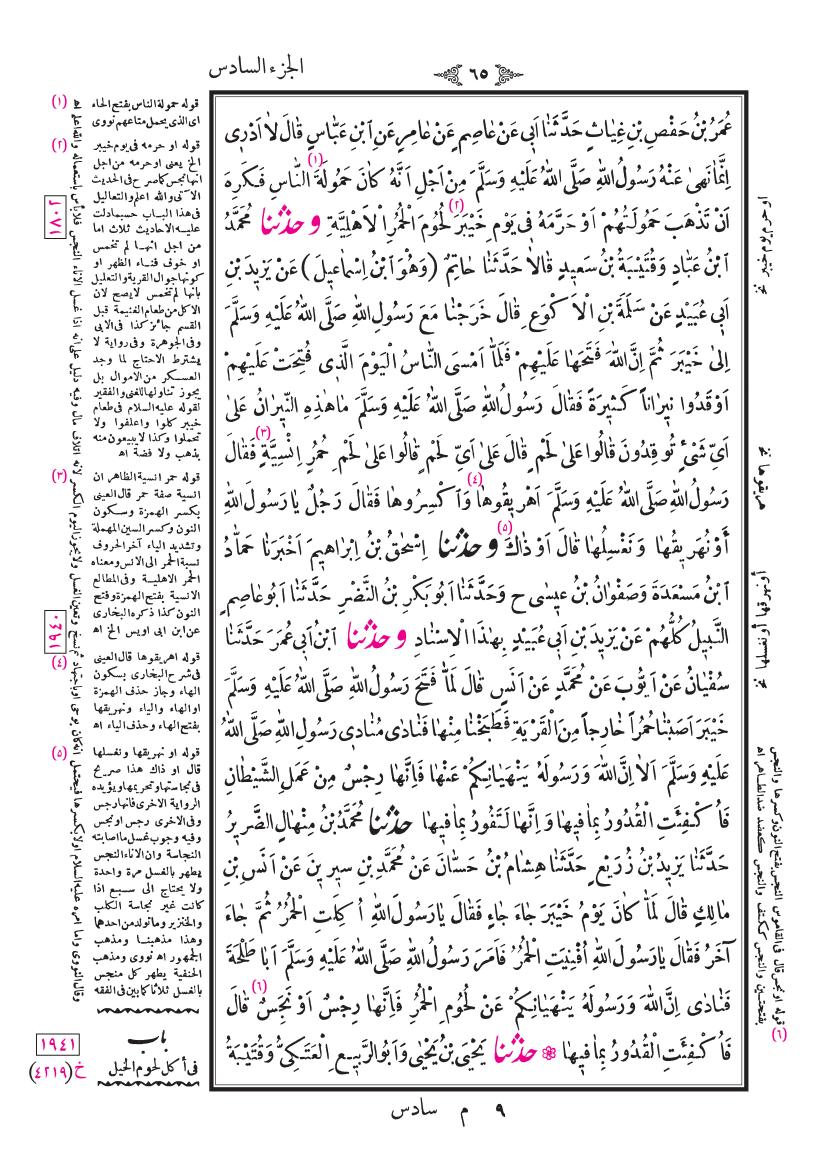 الجزء السادس
٦٥
عُمَرُ بْنُ حَفْصِ بْنِ غِيَاثٍ حَدَّثَنَا أَبِي عَنْ عَاصِمٍ عَنْ عَامِرٍ عَنِ ابْنِ عَبَّاسٍ قَالَ لَا أَدْرِي
إِنَّمَا نَهَى عَنْهُ رَسُولُ اللهِ صَلَّى اللهُ عَلَيْهِ وَسَلَّمَ مِنْ أَجْلِ أَنَّهُ كَانَ حَمُولَةَ (١) النَّاسِ فَكَرِهَ
أَنْ تَذْهَبَ حَمُولَتُهُمْ أَوْ حَرَّمَهُ فِي يَوْمِ خَيْبَرَ (٢) لُحُومَ الْحُمُرِ الْأَهْلِيَّةِ وحَدَّثَنَا مُحَمَّدُ
ابْنُ عَبَّادٍ وَقُتَيْبَةُ بْنُ سَعِيدٍ قَالَا حَدَّثَنَا حَاتِمٌ (وَهُوَ ابْنُ إِسْمَاعِيلَ) عَنْ يَزِيدَ بْنِ
أَبِي عُبَيْدٍ عَنْ سَلَمَةَ بْنِ الْأَكْوَعِ قَالَ خَرَجْنَا مَعَ رَسُولِ اللهِ صَلَّى اللهُ عَلَيْهِ وَسَلَّمَ
إِلَى خَيْبَرَ ثُمَّ إِنَّ اللهَ فَتَحَهَا عَلَيْهِمْ فَلَمَّا أَمْسَى النَّاسُ الْيَوْمَ الَّذِي فُتِحَتْ عَلَيْهِمْ
أَوْقَدُوا نِيرَاناً كَثِيرَةً فَقَالَ رَسُولُ اللهِ صَلَّى اللهُ عَلَيْهِ وَسَلَّمَ مَا هٰذِهِ النِّيرَانُ عَلَى
أَيِّ شَيْءٍ تُوقِدُونَ قَالُوا عَلَى لَحْمٍ قَالَ عَلَى أَيِّ لَحْمٍ قَالُوا عَلَى لَحْمِ حُمُرٍ إِنْسِيَّةٍ (٣) فَقَالَ
رَسُولُ اللهِ صَلَّى اللهُ عَلَيْهِ وَسَلَّمَ أَهْرِيقُوهَا (٤) وَاكْسِرُوهَا فَقَالَ رَجُلٌ يَا رَسُولَ اللهِ
أَوْ نُهَرِيقُهَا وَنَغْسِلُهَا قَالَ أَوْ ذَاكَ (٥) وحَدَّثَنَا إِسْحٰقُ بْنُ إِبْرَاهِيمَ أَخْبَرَنَا حَمَّادُ
ابْنُ مَسْعَدَةَ وَصَفْوَانُ بْنُ عِيسَى ح وَحَدَّثَنَا أَبُو بَكْرِ بْنُ النَّضْرِ حَدَّثَنَا أَبُو عَاصِمٍ
النَّبِيلُ كُلُّهُمْ عَنْ يَزِيدَ بْنِ أَبِي عُبَيْدٍ بِهٰذَا الْإِسْنَادِ وحَدَّثَنَا ابْنُ أَبِي عُمَرَ حَدَّثَنَا
سُفْيَانُ عَنْ أَيُّوبَ عَنْ مُحَمَّدٍ عَنْ أَنَسٍ قَالَ لَمَّا فَتَحَ رَسُولُ اللهِ صَلَّى اللهُ عَلَيْهِ وَسَلَّمَ
خَيْبَرَ أَصَبْنَا حُمُراً خَارِجاً مِنَ الْقَرْيَةِ فَطَبَخْنَا مِنْهَا فَنَادَى مُنَادِي رَسُولِ اللهِ صَلَّى اللهُ
عَلَيْهِ وَسَلَّمَ أَلَا إِنَّ اللهَ وَرَسُولَهُ يَنْهَيَانِكُمْ عَنْهَا فَإِنَّهَا رِجْسٌ مِنْ عَمَلِ الشَّيْطَانِ
فَأُكْفِئَتِ الْقُدُورُ بِمَا فِيهَا وَإِنَّهَا لَتَفُورُ بِمَا فِيهَا حَدَّثَنَا مُحَمَّدُ بْنُ مِنْهَالٍ الضَّرِيرُ
حَدَّثَنَا يَزِيدُ بْنُ زُرَيْعٍ حَدَّثَنَا هِشَامُ بْنُ حَسَّانَ عَنْ مُحَمَّدِ بْنِ سِيرِينَ عَنْ أَنَسِ بْنِ
مَالِكٍ قَالَ لَمَّا كَانَ يَوْمُ خَيْبَرَ جَاءَ جَاءٍ فَقَالَ يَا رَسُولَ اللهِ أُكِلَتِ الْحُمُرُ ثُمَّ جَاءَ
آخَرُ فَقَالَ يَا رَسُولَ اللهِ أُفْنِيَتِ الْحُمُرُ فَأَمَرَ رَسُولُ اللهِ صَلَّى اللهُ عَلَيْهِ وَسَلَّمَ أَبَا طَلْحَةَ
فَنَادَى إِنَّ اللهَ وَرَسُولَهُ يَنْهَيَانِكُمْ عَنْ لُحُومِ الْحُمُرِ فَإِنَّهَا رِجْسٌ أَوْ نَجَسٌ (٦) قَالَ
فَأُكْفِئَتِ الْقُدُورُ بِمَا فِيهَا حَدَّثَنَا يَحْيَى بْنُ يَحْيَى وَأَبُو الرَّبِيعِ الْعَتَكِيُّ وَقُتَيْبَةُ
(١) قوله حمولة الناس بفتح الحاء
اى الذى يحمل متاعهم نووى
(٢) قوله او حرمه فى يوم خيبر
الخ يعنى او حرمه من اجل
انها نجس كما صرح فى الحديث
الآتى والله اعلم والتعاليل
فى هذا الباب حسبما دلت
عليه الاحاديث ثلاث اما
من اجل انها لم تخمس
او خوف فناء الظهر او
كونها جوال القرية والتعليل
بانها لم تخمس لا يصح لان
الاكل من طعام الغنيمة قبل
القسم جائز كذا فى الابى
وفى الجوهرة وفى رواية لا
يشترط الاحتاج لما وجد
العسكر من الاموال بل
يجوز تناولها للغنى والفقير
لقوله عليه السلام فى طعام
خيبر كلوا واعلفوا ولا
تحملوا وكذا لا يبيعون منه
بذهب ولا فضة اه
(٣) قوله حمر انسية الظاهر ان
انسية صفة حمر قال العينى
بكسر الهمزة وسكون
النون وكسر السين المهملة
وتشديد الياء آخر الحروف
نسبة الحمر الى الانس ومعناه
الحمر الاهلية وفى المطالع
الانسية بفتح الهمزة وفتح
النون كذا ذكره البخارى
عن ابن ابى اويس الخ اه
(٤) قوله اهريقوها قال العينى
فى شرح البخارى بسكون
الهاء وجاز حذف الهمزة
او الهاء والياء ونهريقها
بفتح الهاء وحذف الياء اه
(٥) قوله او نهريقها ونغسلها
قال او ذاك هذا صريح
فى نجاستها وتحريمها ويؤيده
الرواية الاخرى فانها رجس
وفى الاخرى رجس او نجس
وفيه وجوب غسل ما اصابته
النجاسة وان الاناء النجس
يطهر بالغسل مرة واحدة
ولا يحتاج الى سبع اذا
كانت غير نجاسة الكلب
والخنزير وما تولد من احدهما
وهذا مذهبنا ومذهب
الجمهور اه نووى ومذهب
الحنفية يطهر كل متنجس
بالغسل ثلاثا كما بين فى الفقه
وقال النووى واما امره عليه السلام اولا بكسرها فيحتمل انه كان بوحى او باجتهاد ثم نسخ وتعين الغسل ولا يجوز اليوم الكسر لانه اتلاف مال وفيه دليل على انه اذا غسل الاناء النجس فلا بأس باستعماله والله اعلم اه
باب
فى أكل لحوم الخيل
١٩٤١
خ (٤٢١٩)
١٩٤٠
هريقوها نخ
(٦) قوله او نجس قال فى القاموس النجس بفتح النون وكسرها والنجس
بفتحتين والنجس ككتف والنجس كعضد ضد الطاهر اه
٩ م سادس